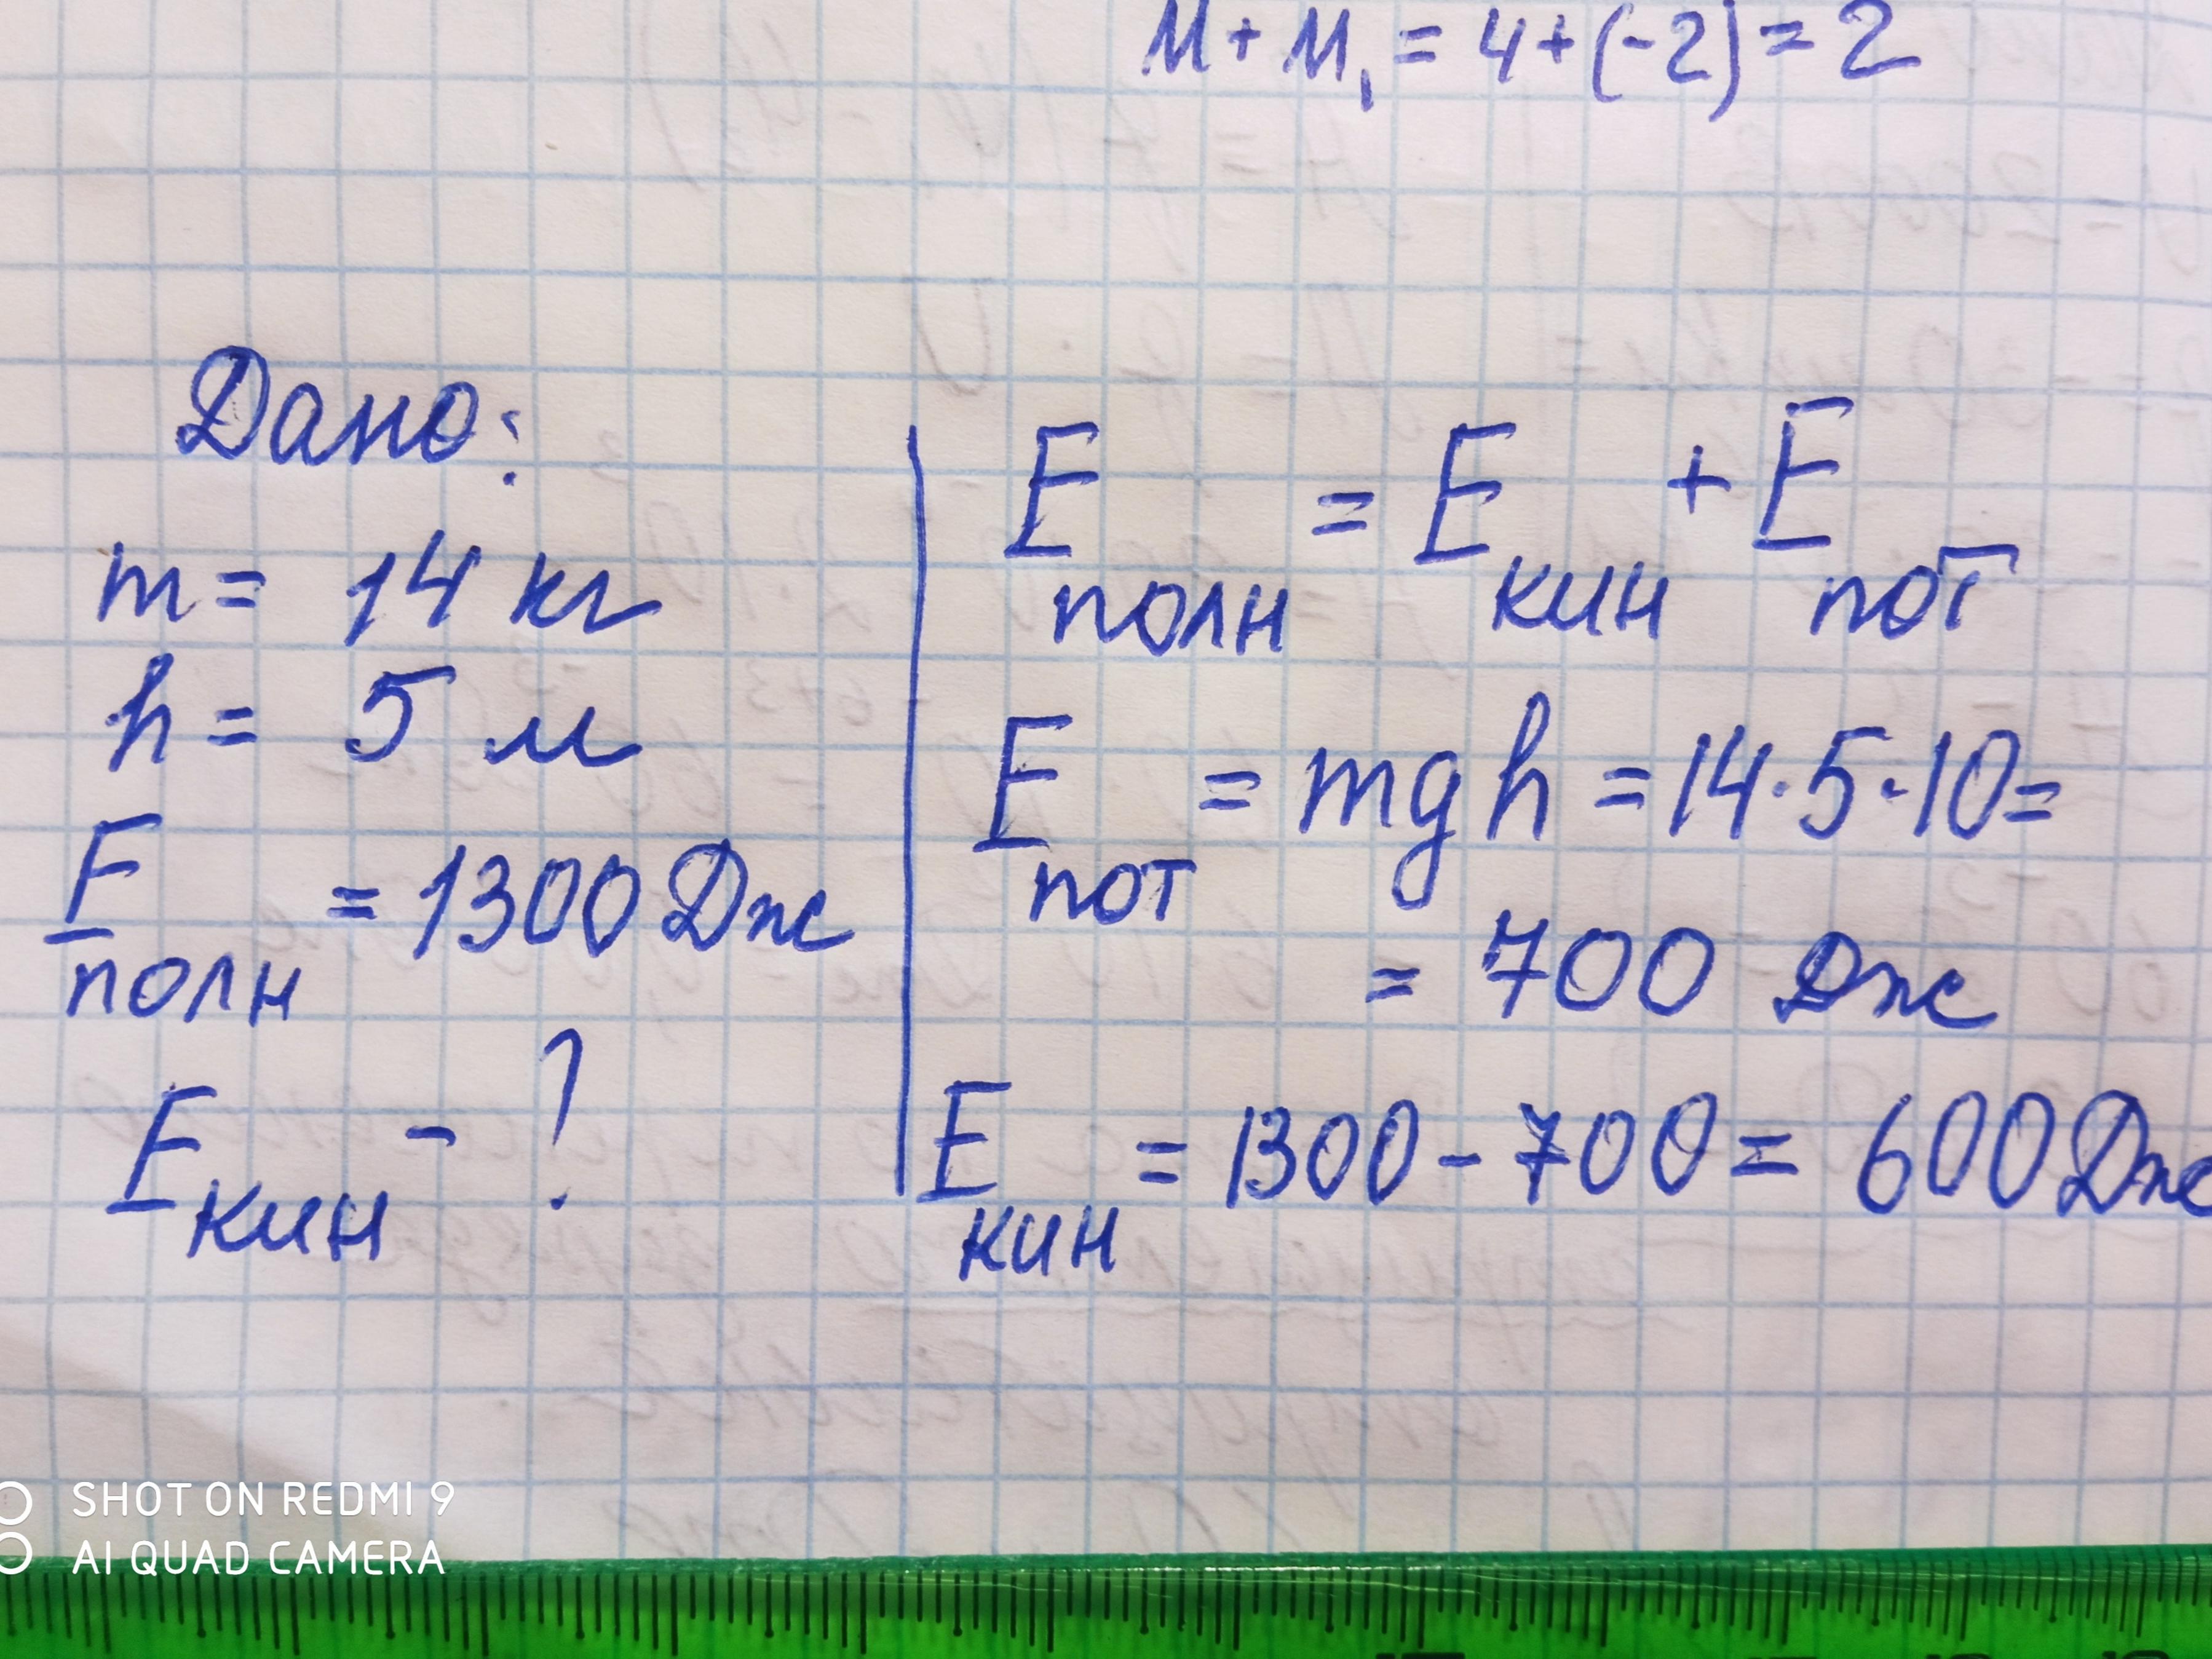 M + M₁ = 4 + (-2) = 2
Дано:
m = 14 кг
h = 5 м
Eполн = 1300 Дж
Eкин - ?
Eполн = Eкин + Eпот
Eпот = mgh = 14·5·10 =
= 700 Дж
Eкин = 1300 - 700 = 600 Дж
SHOT ON REDMI 9
AI QUAD CAMERA